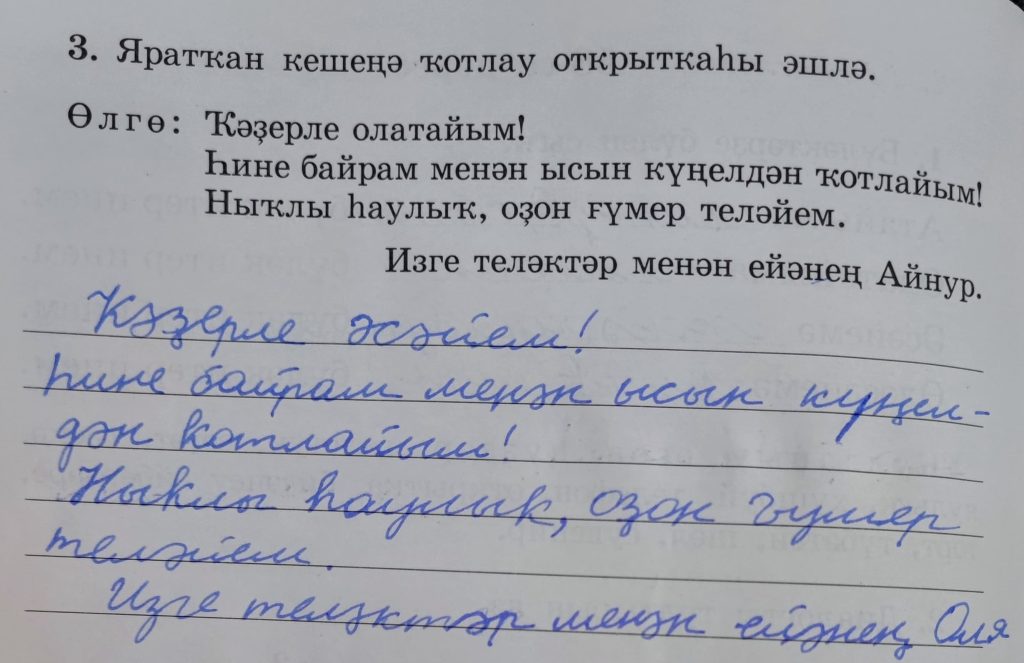 3. Яратҡан кешеңә ҡотлау открыткаһы эшлә.
Өлгө: Ҡәҙерле олатайым!
Һине байрам менән ысын күңелдән ҡотлайым!
Ныҡлы һаулыҡ, оҙон ғүмер теләйем.
Изге теләктәр менән ейәнең Айнур.
Ҡәҙерле әсәйем!
Һине байрам менән ысын күңел-
дән ҡотлайым!
Ныҡлы һаулыҡ, оҙон ғүмер
теләйем.
Изге теләктәр менән ейәнең Оля